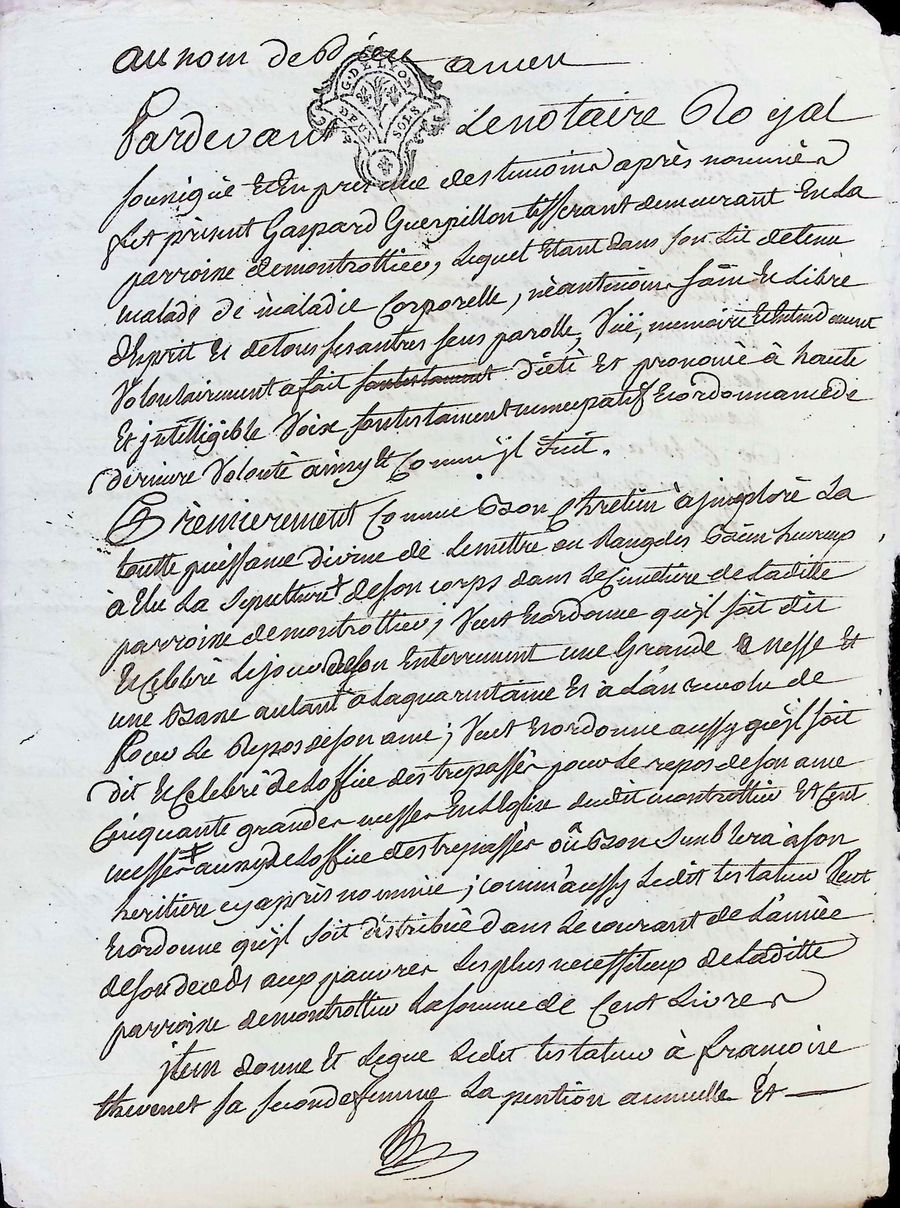 au nom de Dieu amen
G. DE LYON
DEUX SOLS
Pardevant Le notaire Royal
soussigné et En presence des temoins après nommés
fut présent Gaspard Guerpillon tisserant demeurant En La
parroisse de montrottier, Lequel Etant dans son Lit detenu
malade de maladie Corporelle, néantmoins sain et Libre
d'Esprit Et de tous ses autres sens parolle, Vüe, memoire et Entendement
Volontairement a fait son testament dicté Et prononcé à haute
Et jntelligible Voix son testament nuncupatif Et ordonnance de
derniere Volonté ainsy Et Comm'jl suit.
Premierement Comme Bon Chretien à jmploré La
toutte puissance divine de Le mettre au Rang des Bienheureux
à Elu La Sepulture + de son corps dans Le Cimetiere de Laditte
parroisse de montrottier; Veut Et ordonne qu'jl soit dit
et Celebré Le jour de son Enterrement une Grande messe Et
une Basse autant à La quarantaine Et à L'an revolu de
Pour Le Repos de son ame; Veut Et ordonne aussy qu'jl soit
dit et Celebré de L'office des trepassés pour Le repos de son ame
Cinquante grandes messes En L'Eglise dudit montrottier Et Cent
messes + aussy de L'office des trepassés où Bon Semblera à son
heritiere cy après nommée; comm'aussy Ledit testateur Veut
Et ordonne qu'jl soit distribué dans Le courant de L'année
de son deceds aux pauvres Les plus necessiteux de Laditte
parroisse de montrottier La somme de Cent Livres
jtem donne Et Legue Ledit testateur à françoise
thevenet sa seconde femme La pention annuelle Et